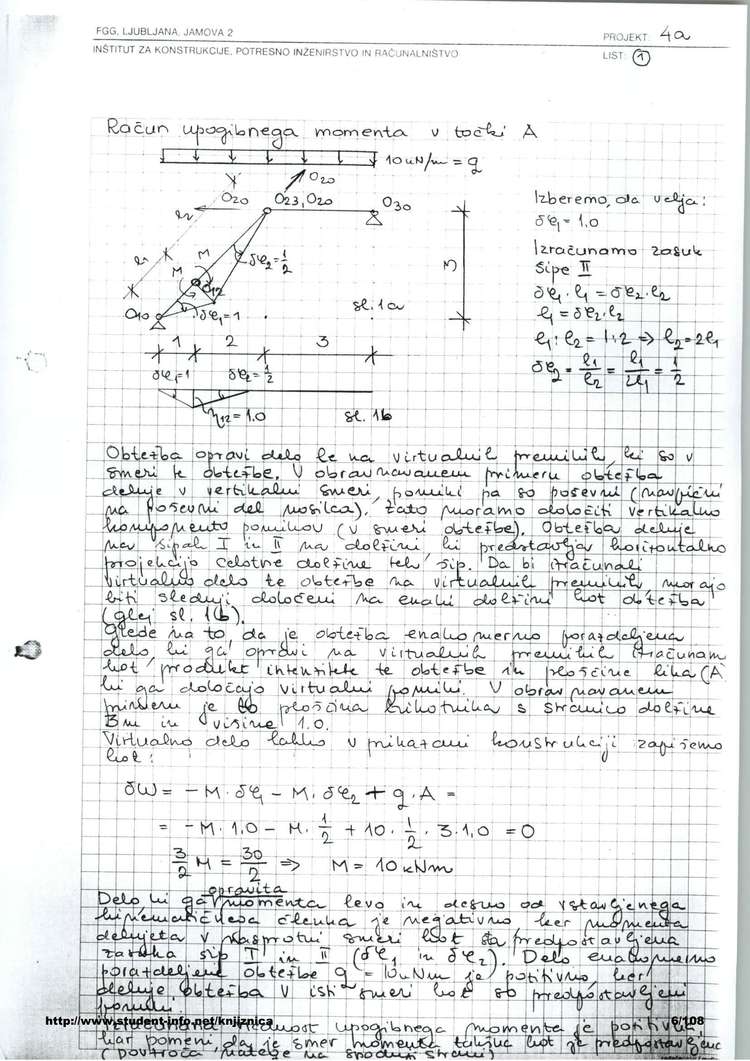 FGG, LJUBLJANA, JAMOVA 2
PROJEKT: 4a
INŠTITUT ZA KONSTRUKCIJE, POTRESNO INŽENIRSTVO IN RAČUNALNIŠTVO
LIST: 1
Račun upogibnega momenta v točki A
10 kN/m = q
O20
O20
O23, O20
O30
l2
l1
M
M
δφ2 = 1/2
O12
O10
δφ1 = 1
3
sl. 1a
1 2 3
δφ1 = 1 δφ2 = 1/2
η12 = 1.0
sl. 1b
Izberemo, da velja:
δφ1 = 1.0
Izračunamo zasuk
šipe II
δφ1 · l1 = δφ2 · l2
l1 = δφ2 · l2
l1 : l2 = 1:2 => l2 = 2l1
δφ2 = l1/l2 = l1/2l1 = 1/2
Obtežba opravi delo le na virtualnih premikih, ki so v
smeri te obtežbe. V obravnavanem primeru obtežba
deluje v vertikalni smeri, pomiki pa so poševni (navpični
na poševni del nosilca), zato moramo določiti vertikalno
komponento pomikov (v smeri obtežbe). Obtežba deluje
na šipah I in II na dolžini, ki predstavlja horizontalno
projekcijo celotne dolžine teh šip. Da bi izračunali
virtualno delo te obtežbe na virtualnih premikih morajo
biti slednji določeni na enaki dolžini kot obtežba
(glej sl. 1b).
Glede na to, da je obtežba enakomerno porazdeljena
delo, ki ga opravi na virtualnih premikih izračunam
kot produkt intenzitete te obtežbe in ploščine lika (A
ki ga določajo virtualni pomiki. V obravnavanem
primeru je to ploščina trikotnika s stranico dolžine
3m in višine 1.0.
Virtualno delo lahko v prikazani konstrukciji zapišemo
kot:
δW = -M · δφ1 - M · δφ2 + q · A =
= -M · 1.0 - M · 1/2 + 10 · 1/2 · 3 · 1,0 = 0
3/2 M = 30/2 => M = 10 kNm
opravita
Delo ki ga momenta levo in desno od vstavljenega
kinematičnega členka je negativno ker momenta
delujeta v nasprotni smeri kot sta predpostavljena
zasuka šip I in II (δφ1 in δφ2). Delo enakomerno
porazdeljene obtežbe q = 10kNm je pozitivno, ker
deluje obtežba v isti smeri kot so predpostavljeni
pomiki.
http://www.student-info.net/knjiznica
6/108
vrednost upogibnega momenta je pozitivna
kar pomeni, da je smer momenta takšna kot je predpostavljena
(povzroča natege na spodnji strani)